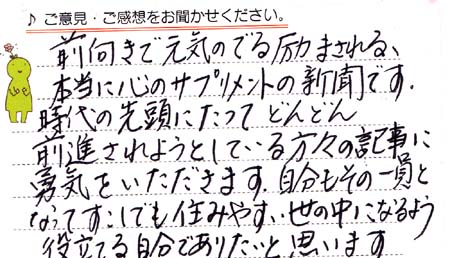 ♪ ご意見・ご感想をお聞かせください。
前向きで元気のでる励まされる、
本当に心のサプリメントの新聞です.
時代の先頭にたって どんどん
前進されようとしている方々の記事に
勇気をいただきます. 自分もその一員と
なってすこしでも住みやすい世の中になるよう
役立てる自分でありたいと思います